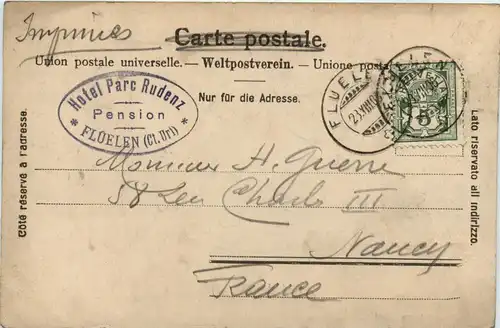 Imprimés
Carte postale.
Union postale universelle. — Weltpostverein. — Unione posta
Nur für die Adresse.
Hotel Parc Rudenz
Pension
* FLÜELEN (Ct. Uri) *
FLUELEN
Côté réservé à l'adresse.
Lato riservato all indirizzo.
Monsieur H. Guerre
58 Charles III
Nancy
France
5